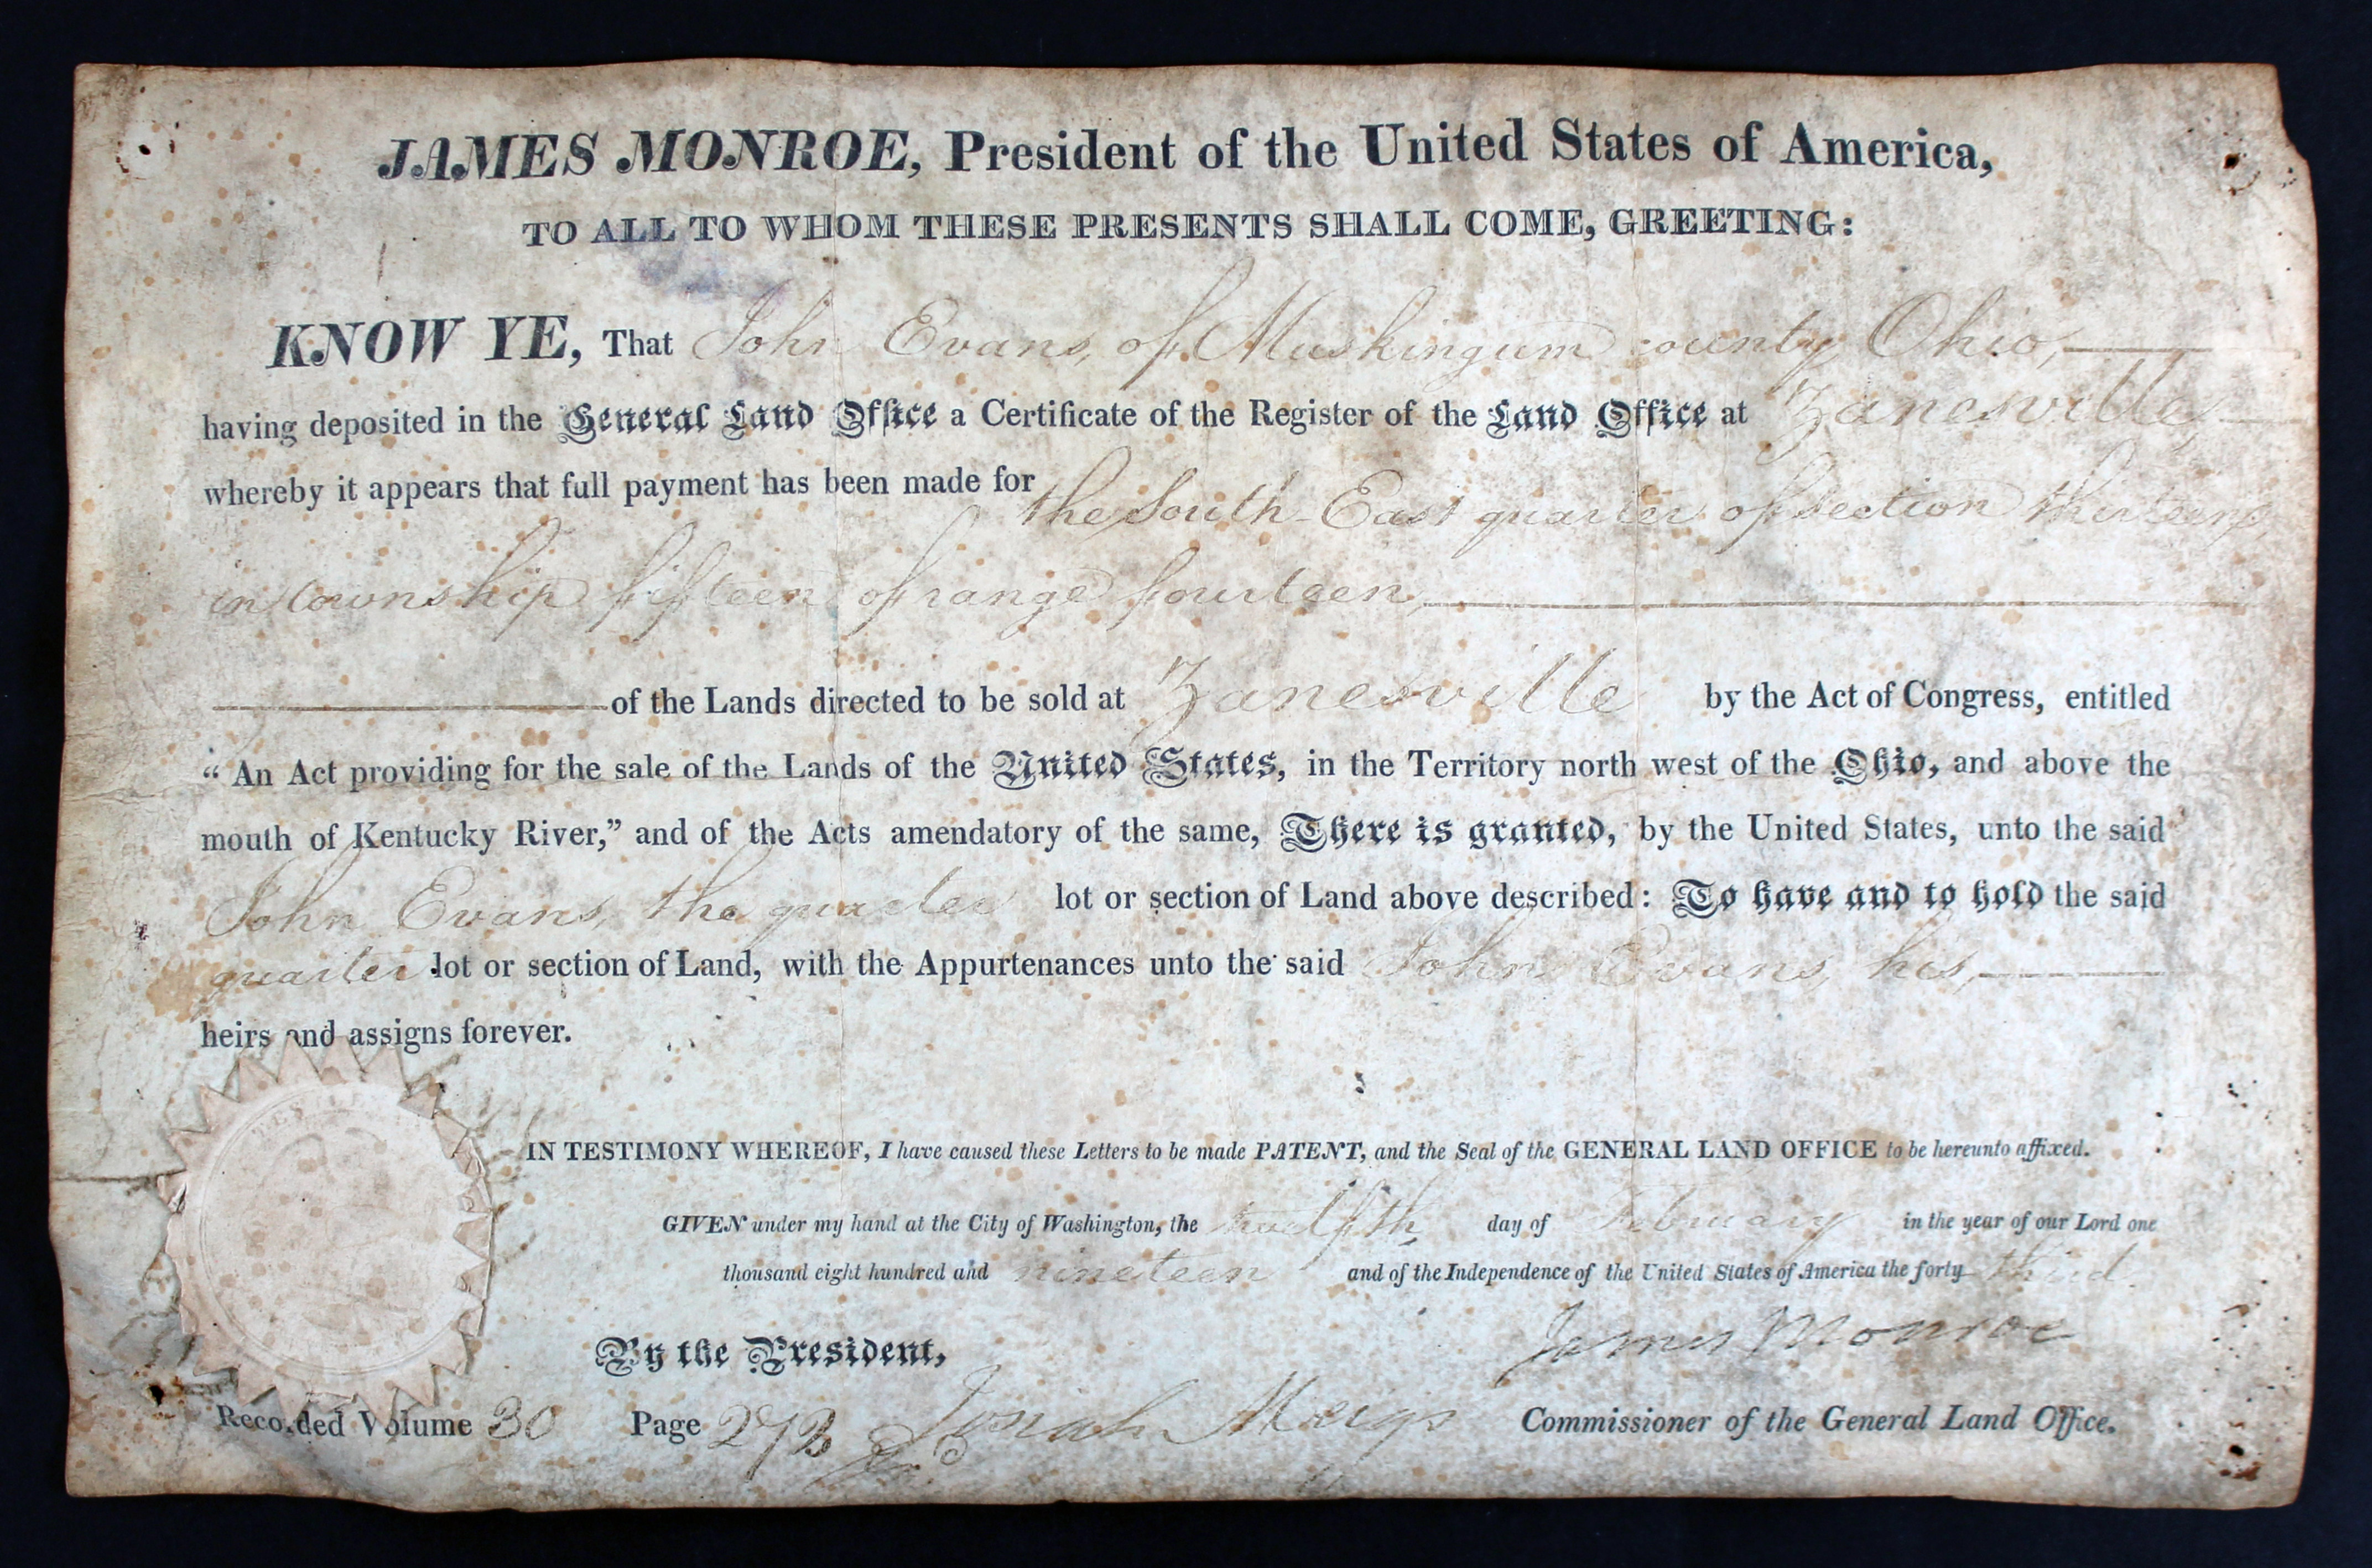 JAMES MONROE, President of the United States of America,
TO ALL TO WHOM THESE PRESENTS SHALL COME, GREETING:
KNOW YE, That John Evans, of Muskingum county Ohio,
having deposited in the General Land Office a Certificate of the Register of the Land Office at Zanesville,
whereby it appears that full payment has been made for the South-East quarter of section thirteen,
in township fifteen of range fourteen,
of the Lands directed to be sold at Zanesville by the Act of Congress, entitled
“An Act providing for the sale of the Lands of the United States, in the Territory north west of the Ohio, and above the
mouth of Kentucky River,” and of the Acts amendatory of the same, There is granted, by the United States, unto the said
John Evans, the quarter lot or section of Land above described: To have and to hold the said
quarter lot or section of Land, with the Appurtenances unto the said John Evans, his,
heirs and assigns forever.
IN TESTIMONY WHEREOF, I have caused these Letters to be made PATENT, and the Seal of the GENERAL LAND OFFICE to be hereunto affixed.
GIVEN under my hand at the City of Washington, the twelfth day of February in the year of our Lord one
thousand eight hundred and nineteen and of the Independence of the United States of America the forty third.
James Monroe
By the President,
Recorded Volume 30 Page 272 Josiah Meigs Commissioner of the General Land Office.